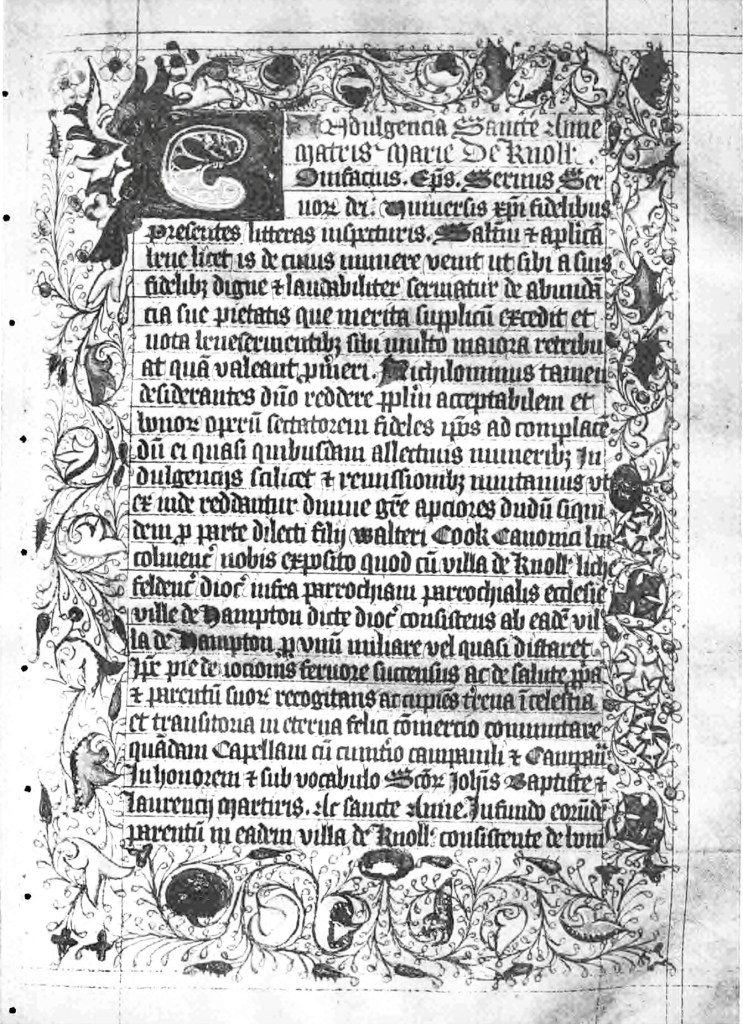 Indulgencia Sancte Anne
Matris Marie De Knoll.
Bonifacius. Eps. Servus Ser
uoꝝ dei. Universis xpi fidelibus
presentes litteras inspecturis. Saltm̄ ⁊ aplicā
bene licet is de cuius munere venit ut sibi a suis
fidelibꝫ digne ⁊ laudabiliter serviatur de abundā
cia sue pietatis que merita supplicū excedit et
vota bene servientibꝫ sibi multo maiora retribu
at quā valeant ꝓmeri. Nichilominus tamen
desiderantes dn̄o reddere ꝓplm̄ acceptabilem et
bonoꝝ operū sectatorem fideles ip̄os ad complacē
dū ei quasi quibusdam allectiuis muneribꝫ In
dulgencijs scilicet ⁊ remissionibꝫ inuitamus ut
ex inde reddantur diuine gr̄e apciores dudū siqui
dem ꝓ parte dilecti filij walteri Cook Canonici lin
colnienc̄ nobis exposito quod cū villa de Knoll liche
feldenc̄ dioc̄ infra parrochiam parrochialis ecclesie
ville de Hampton dicte dioc̄ consistens ab eadē vil
la de Hampton ꝑ vnū miliare vel quasi distaret
Ip̄e pie deuocionis feruore succensus ac de salute ꝓpa
⁊ parentū suoꝝ recogitans ac cupiēs t'rena ī celestia
et transitoria in eterna felici cōmercio commutare
quādam Capellam cū cimit'io campanili ⁊ Campan̄
In honorem ⁊ sub vocabulo Sctoꝝ Joh̄is Baptiste ⁊
Laurencij Martiris. Ac sancte Anne. In fundo eorūdē
parentū in eadem villa de Knoll consistente de boni